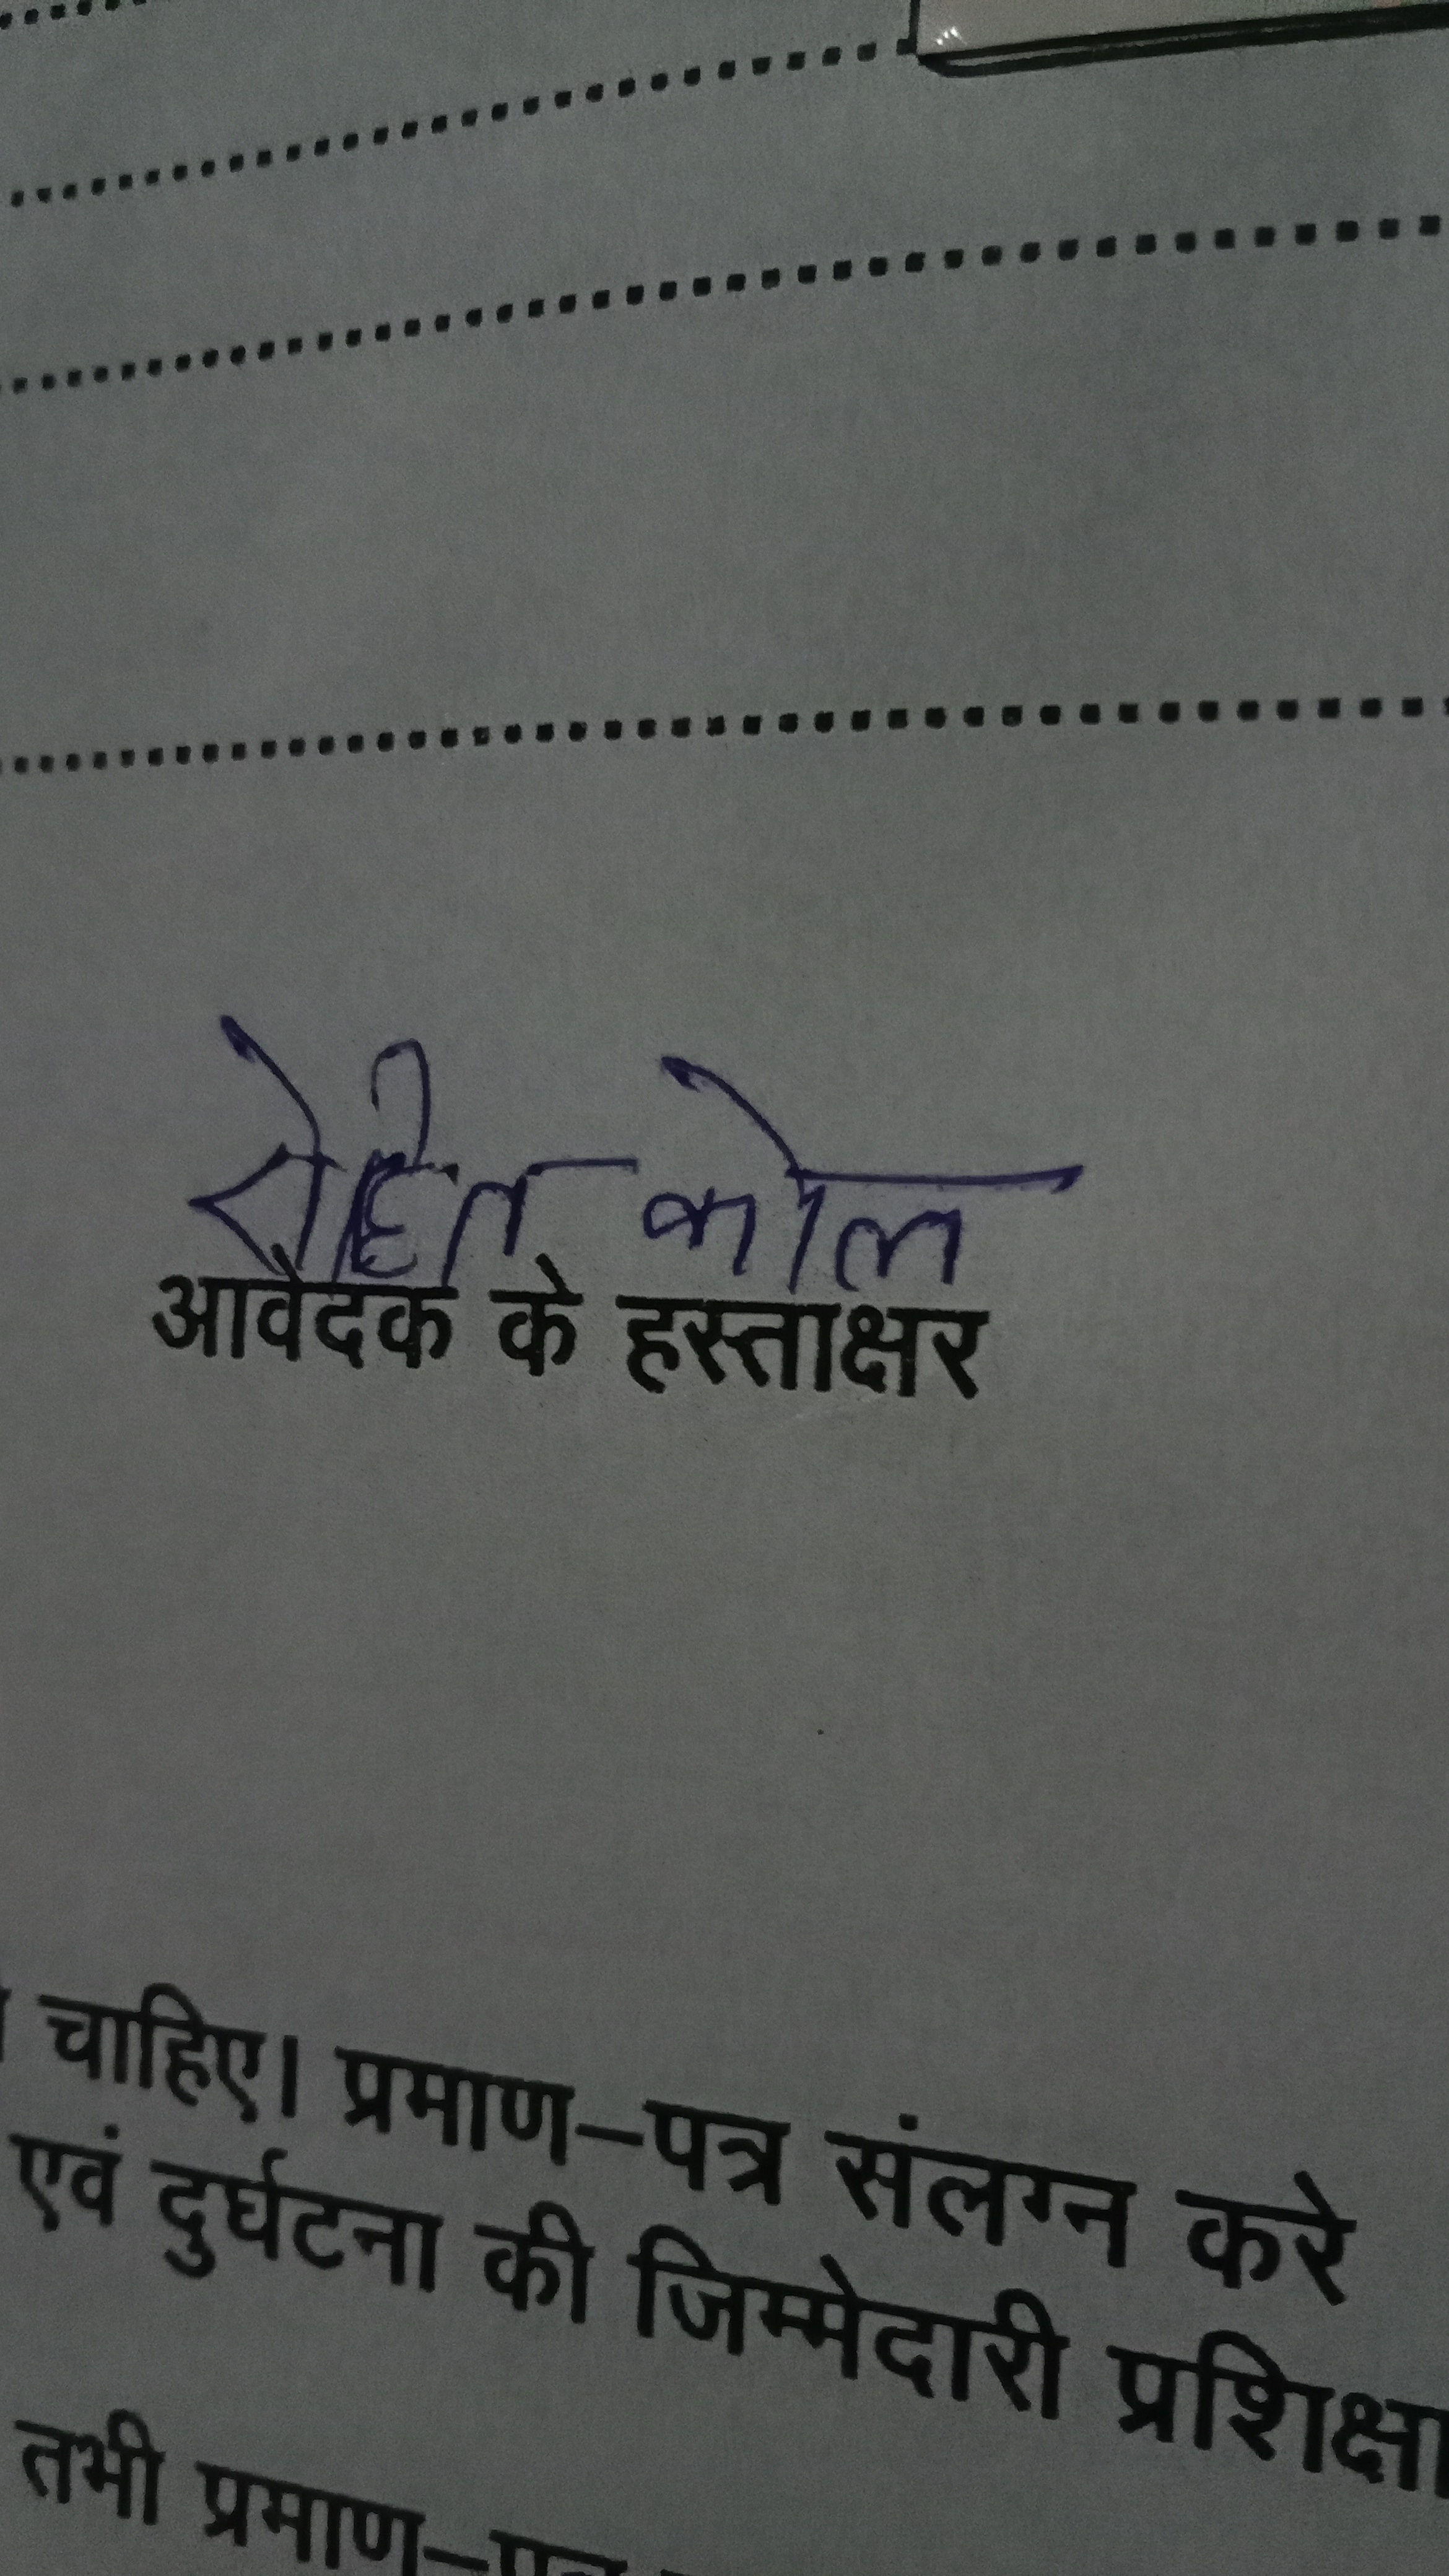 रोहित कोल
आवेदक के हस्ताक्षर
चाहिए। प्रमाण–पत्र संलग्न करे
एवं दुर्घटना की जिम्मेदारी प्रशिक्षा
तभी प्रमाण–पत्र